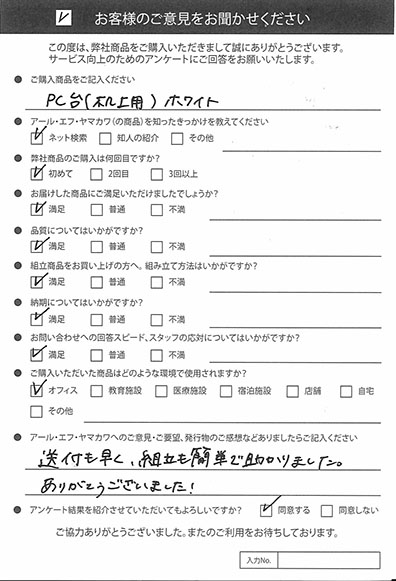 ☑ お客様のご意見をお聞かせください
この度は、弊社商品をご購入いただきまして誠にありがとうございます。
サービス向上のためのアンケートにご回答をお願いいたします。
● ご購入商品をご記入ください
PC台(机上用) ホワイト
● アール・エフ・ヤマカワ(の商品)を知ったきっかけを教えてください
☑ ネット検索 □ 知人の紹介 □ その他
● 弊社商品のご購入は何回目ですか?
☑ 初めて □ 2回目 □ 3回以上
● お届けした商品にご満足いただけましたでしょうか?
☑ 満足 □ 普通 □ 不満
● 品質についてはいかがですか?
☑ 満足 □ 普通 □ 不満
● 組立商品をお買い上げの方へ。組み立て方法はいかがですか?
☑ 満足 □ 普通 □ 不満
● 納期についてはいかがですか?
☑ 満足 □ 普通 □ 不満
● お問い合わせへの回答スピード、スタッフの応対についてはいかがですか?
☑ 満足 □ 普通 □ 不満
● ご購入いただいた商品はどのような環境で使用されますか?
☑ オフィス □ 教育施設 □ 医療施設 □ 宿泊施設 □ 店舗 □ 自宅
□ その他
● アール・エフ・ヤマカワへのご意見・ご要望、発行物のご感想などありましたらご記入ください
送付も早く、組立も簡単で助かりました。
ありがとうございました!
● アンケート結果を紹介させていただいてもよろしいですか? ☑ 同意する □ 同意しない
ご協力ありがとうございました。またのご利用をお待ちしております。
入力No.